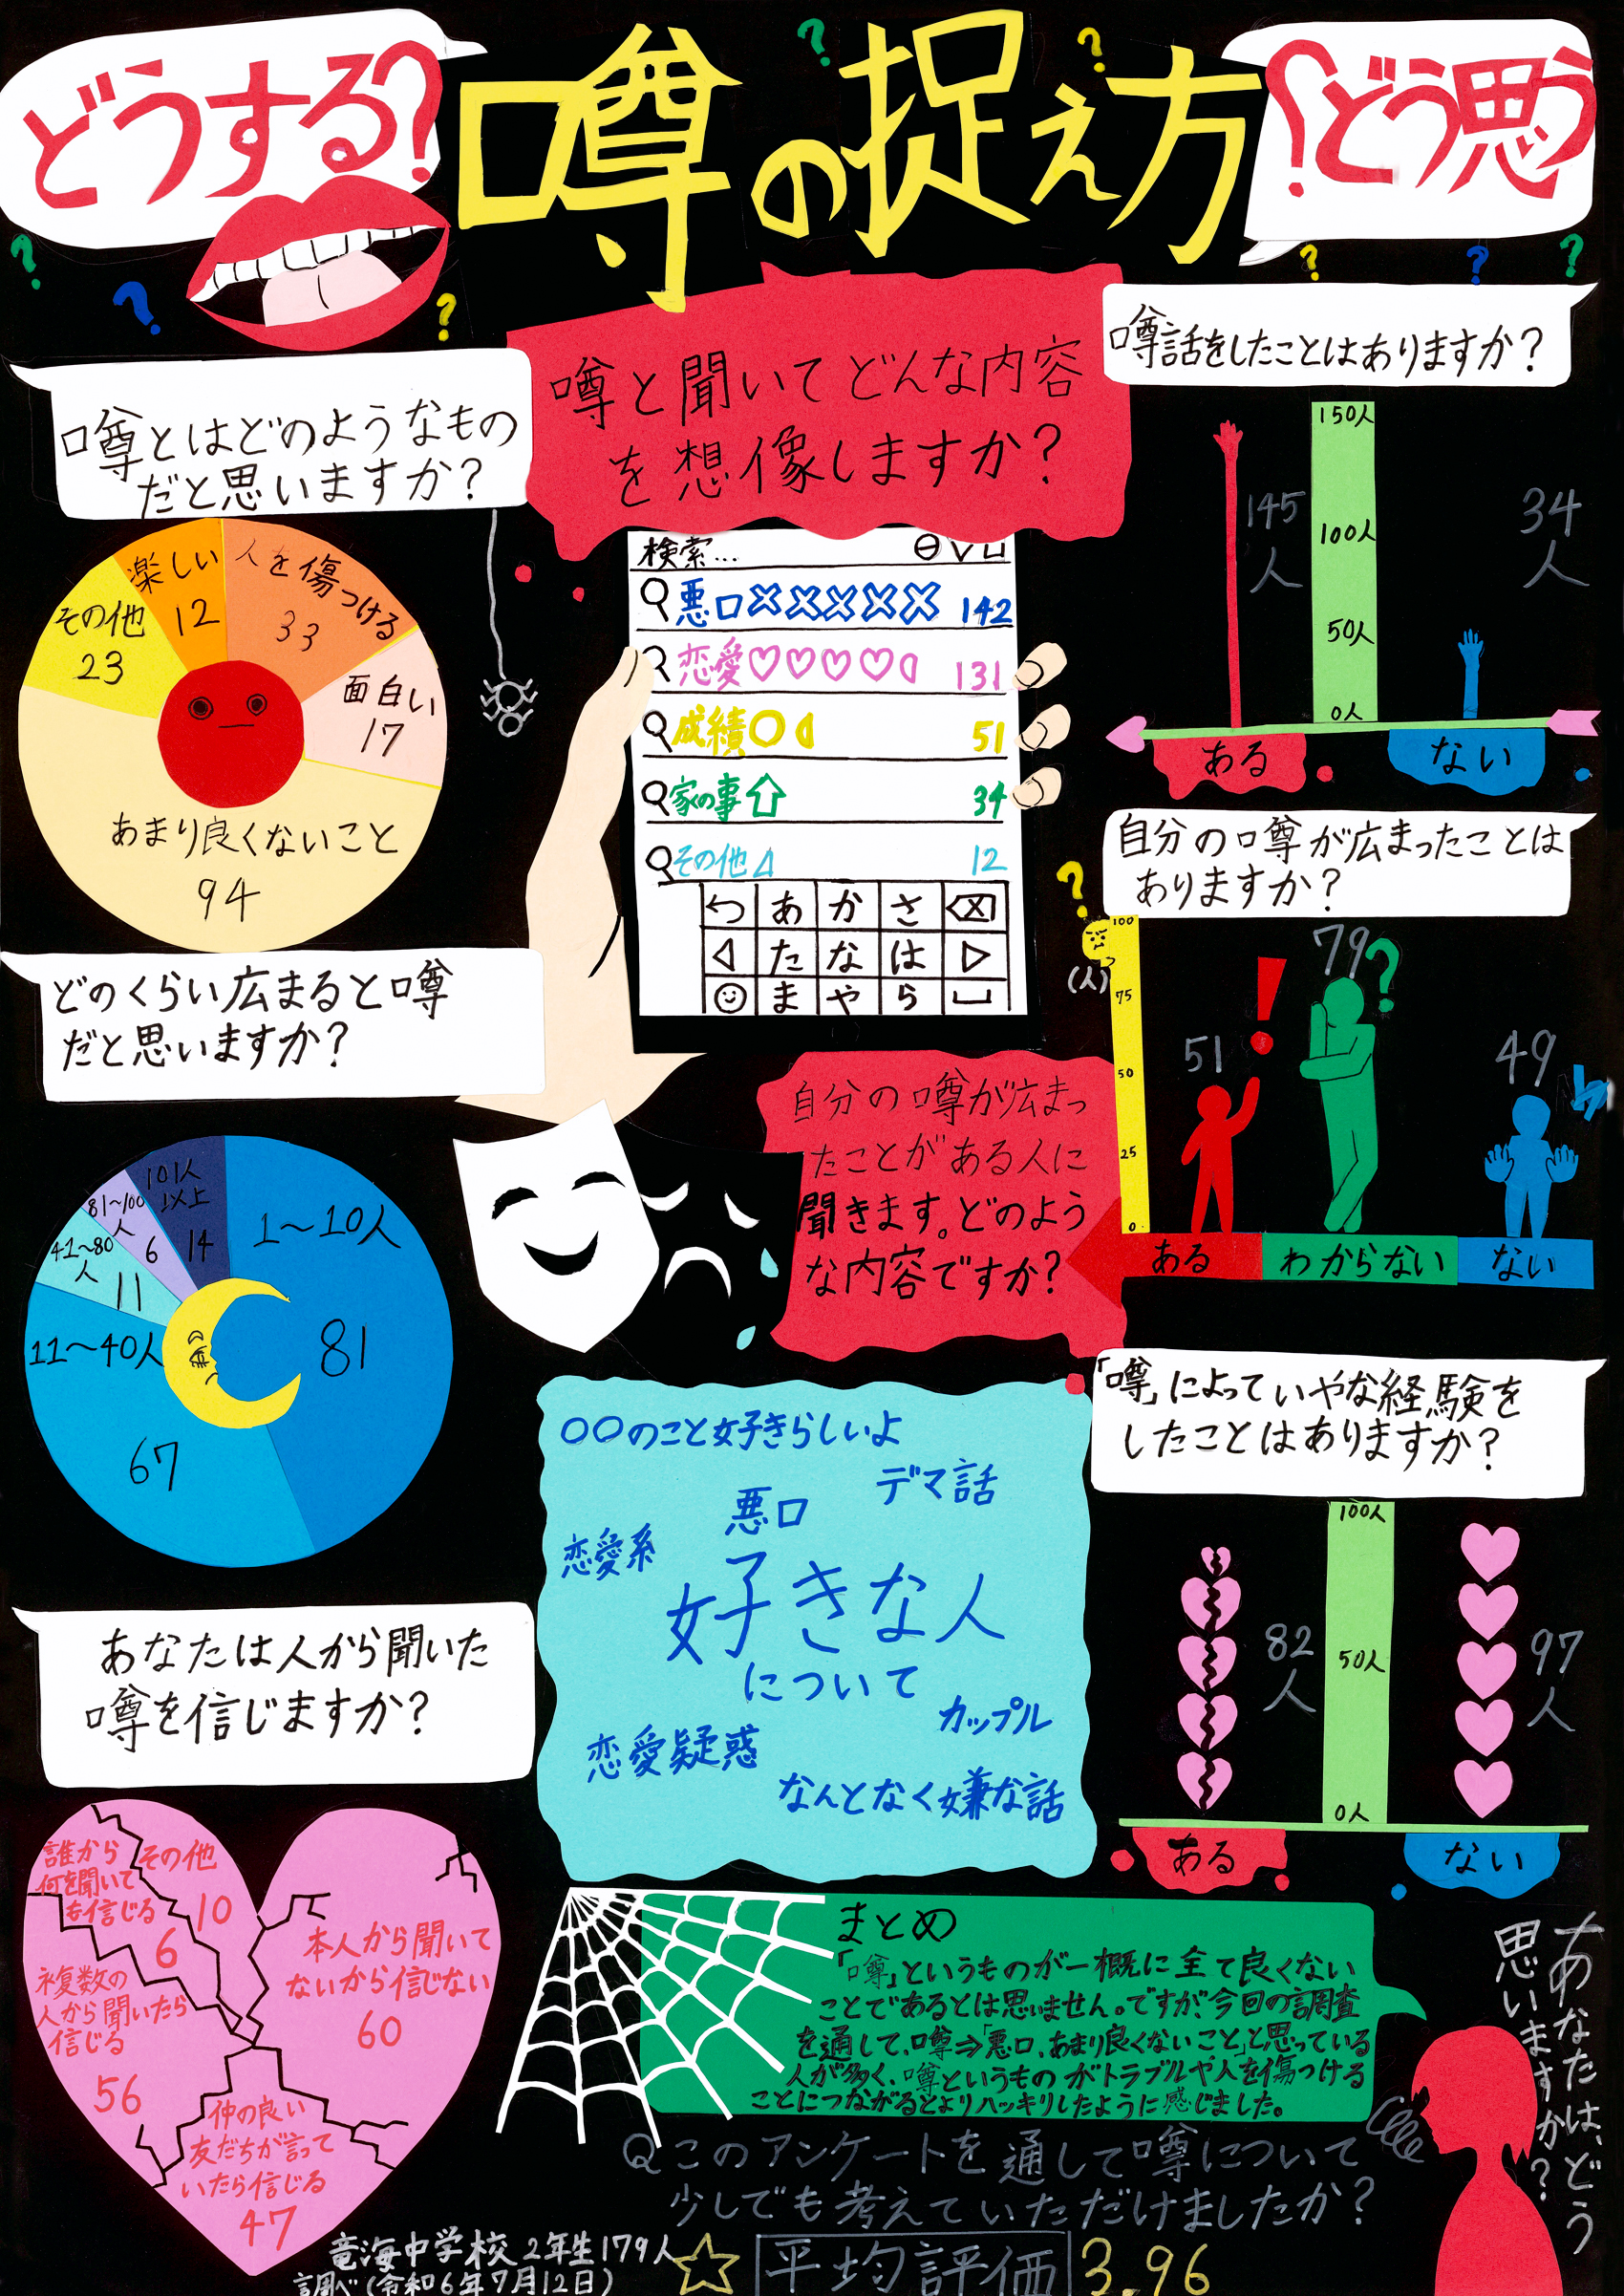 どうする?
噂の捉え方
?どう思う
噂とはどのようなもの
だと思いますか?
楽しい
12
人を傷つける
33
その他
23
面白い
17
あまり良くないこと
94
噂と聞いてどんな内容
を想像しますか?
検索...
悪口 142
恋愛 131
成績 51
家の事 34
その他 12
あ か さ
た な は
ま や ら
噂話をしたことはありますか?
150人
100人
50人
0人
145人
34人
ある
ない
自分の噂が広まったことは
ありますか?
100
(人)
75
50
25
0
51
79
49
ある
わからない
ない
どのくらい広まると噂
だと思いますか?
1〜10人
81
11〜40人
67
41〜80人
11
81〜100人
6
101人以上
14
自分の噂が広まっ
たことがある人に
聞きます。どのよう
な内容ですか?
〇〇のこと好きらしいよ
デマ話
悪口
恋愛系
好きな人
について
カップル
恋愛疑惑
なんとなく嫌な話
「噂」によっていやな経験を
したことはありますか?
100人
50人
0人
82人
97人
ある
ない
あなたは人から聞いた
噂を信じますか?
誰から
何を聞いて
も信じる
6
その他
10
本人から聞いて
ないから信じない
60
複数の
人から聞いたら
信じる
56
仲の良い
友だちが言って
いたら信じる
47
まとめ
「噂」というものが一概に全て良くない
ことであるとは思いません。ですが、今回の調査
を通して、噂⇒「悪口、あまり良くないこと」と思っている
人が多く、噂というものがトラブルや人を傷つける
ことにつながるとよりハッキリしたように感じました。
あなたは、どう
思いますか?
Qこのアンケートを通して噂について
少しでも考えていただけましたか?
☆平均評価 3.96
竜海中学校2年生179人
調べ(令和6年7月12日)